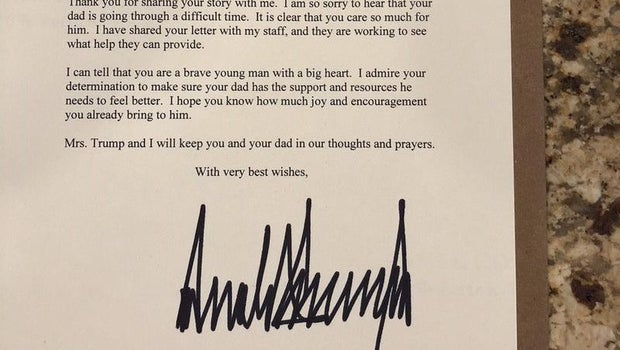 Thank you for sharing your story with me. I am so sorry to hear that your
dad is going through a difficult time. It is clear that you care so much for
him. I have shared your letter with my staff, and they are working to see
what help they can provide.
I can tell that you are a brave young man with a big heart. I admire your
determination to make sure your dad has the support and resources he
needs to feel better. I hope you know how much joy and encouragement
you already bring to him.
Mrs. Trump and I will keep you and your dad in our thoughts and prayers.
With very best wishes,